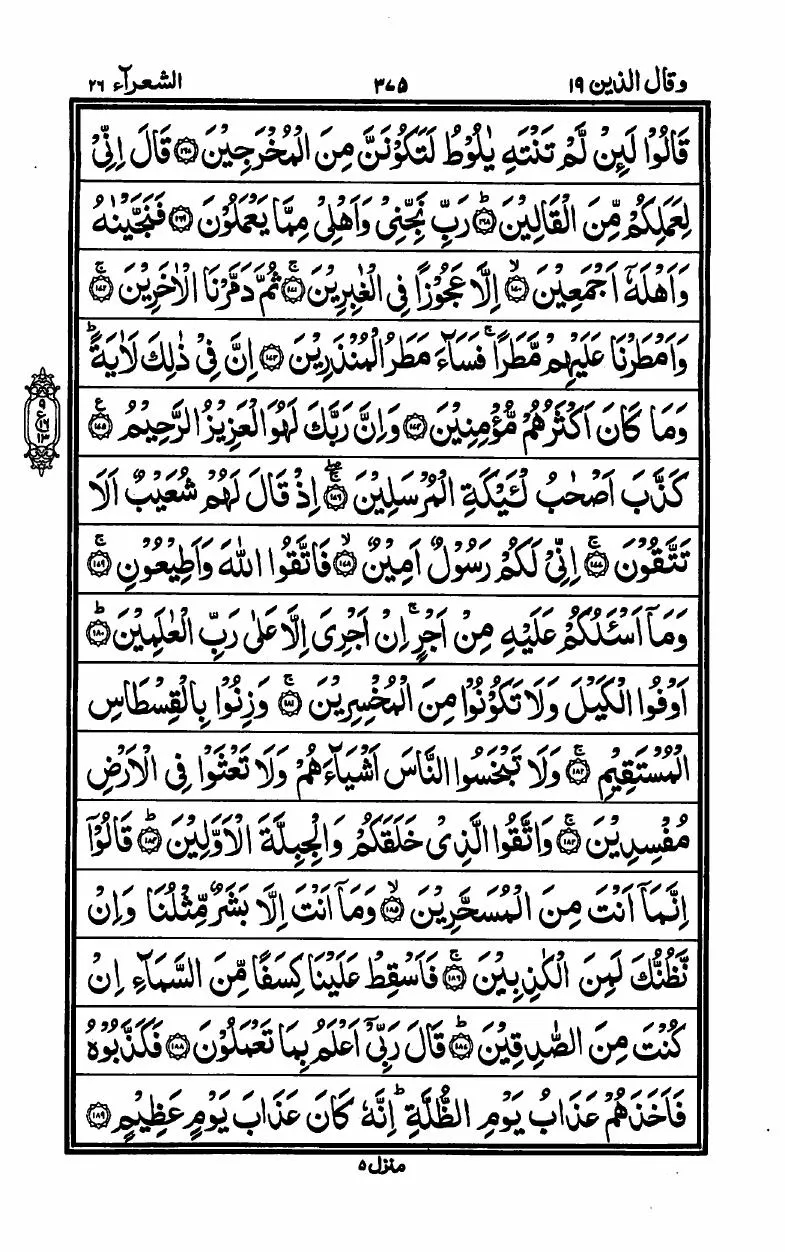 وقال الذین ۱۹ ۳۷۵ الشعرآء ۲۶
قَالُوْا لَىِٕنْ لَّمْ تَنْتَهِ یٰلُوْطُ لَتَكُوْنَنَّ مِنَ الْمُخْرَجِیْنَ ۝۱۶۷ قَالَ اِنِّیْ
لِعَمَلِكُمْ مِّنَ الْقَالِیْنَ ۝۱۶۸ؕ رَبِّ نَجِّنِیْ وَاَهْلِیْ مِمَّا یَعْمَلُوْنَ ۝۱۶۹ فَنَجَّیْنٰهُ
وَاَهْلَهٗۤ اَجْمَعِیْنَ ۝۱۷۰ۙ اِلَّا عَجُوْزًا فِی الْغٰبِرِیْنَ ۝۱۷۱ۚ ثُمَّ دَمَّرْنَا الْاٰخَرِیْنَ ۝۱۷۲ۚ
وَاَمْطَرْنَا عَلَیْهِمْ مَّطَرًا ۚ فَسَآءَ مَطَرُ الْمُنْذَرِیْنَ ۝۱۷۳ اِنَّ فِیْ ذٰلِكَ لَاٰیَةً ؕ
وَمَا كَانَ اَكْثَرُهُمْ مُّؤْمِنِیْنَ ۝۱۷۴ وَاِنَّ رَبَّكَ لَهُوَ الْعَزِیْزُ الرَّحِیْمُ ۝۱۷۵ۧ
ع
۹
۱۶
۱۳
كَذَّبَ اَصْحٰبُ لْـَٔیْكَةِ الْمُرْسَلِیْنَ ۝۱۷۶ۚۖ اِذْ قَالَ لَهُمْ شُعَیْبٌ اَلَا
تَتَّقُوْنَ ۝۱۷۷ۚ اِنِّیْ لَكُمْ رَسُوْلٌ اَمِیْنٌ ۝۱۷۸ۙ فَاتَّقُوا اللّٰهَ وَاَطِیْعُوْنِ ۝۱۷۹ۚ
وَمَاۤ اَسْـَٔلُكُمْ عَلَیْهِ مِنْ اَجْرٍ ۚ اِنْ اَجْرِیَ اِلَّا عَلٰی رَبِّ الْعٰلَمِیْنَ ۝۱۸۰ؕ
اَوْفُوا الْكَیْلَ وَلَا تَكُوْنُوْا مِنَ الْمُخْسِرِیْنَ ۝۱۸۱ۚ وَزِنُوْا بِالْقِسْطَاسِ
الْمُسْتَقِیْمِ ۝۱۸۲ۚ وَلَا تَبْخَسُوا النَّاسَ اَشْیَآءَهُمْ وَلَا تَعْثَوْا فِی الْاَرْضِ
مُفْسِدِیْنَ ۝۱۸۳ۚ وَاتَّقُوا الَّذِیْ خَلَقَكُمْ وَالْجِبِلَّةَ الْاَوَّلِیْنَ ۝۱۸۴ؕ قَالُوْۤا
اِنَّمَاۤ اَنْتَ مِنَ الْمُسَحَّرِیْنَ ۝۱۸۵ۙ وَمَاۤ اَنْتَ اِلَّا بَشَرٌ مِّثْلُنَا وَاِنْ
نَّظُنُّكَ لَمِنَ الْكٰذِبِیْنَ ۝۱۸۶ۚ فَاَسْقِطْ عَلَیْنَا كِسَفًا مِّنَ السَّمَآءِ اِنْ
كُنْتَ مِنَ الصّٰدِقِیْنَ ۝۱۸۷ؕ قَالَ رَبِّیْۤ اَعْلَمُ بِمَا تَعْمَلُوْنَ ۝۱۸۸ فَكَذَّبُوْهُ
فَاَخَذَهُمْ عَذَابُ یَوْمِ الظُّلَّةِ ؕ اِنَّهٗ كَانَ عَذَابَ یَوْمٍ عَظِیْمٍ ۝۱۸۹
منزل ۵